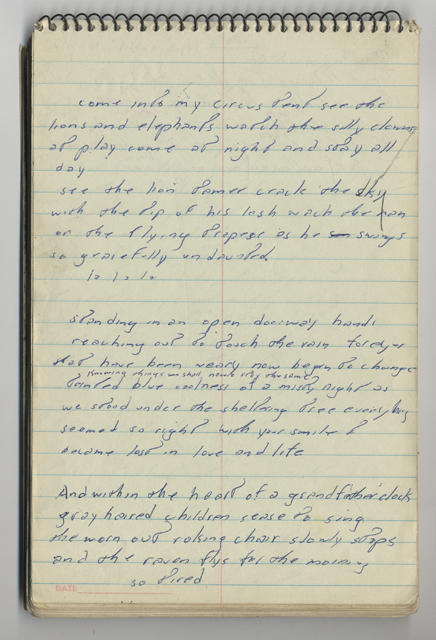 come into my circus tent see the
lions and elephants watch the silly clowns
at play come at night and stay all
day
see the lion tamer crack the sky
with the tip of his lash wach the man
on the flying trapese as he swings
so gracefully undaunted
la la la
standing in an open doorway hands
reaching out to touch the rain
that have been weary now begin to change
knowing things we shall never stay the same
tented blue coolness of a misty night as
we stood under the sheltering tree everything
seemed so right with your smile I
became lost in love and life
And within the heart of a grandfather clock
gray haired children cease to sing
the worn out roking chair slowly stops
and the raven flys for the morning
so tired
DATE